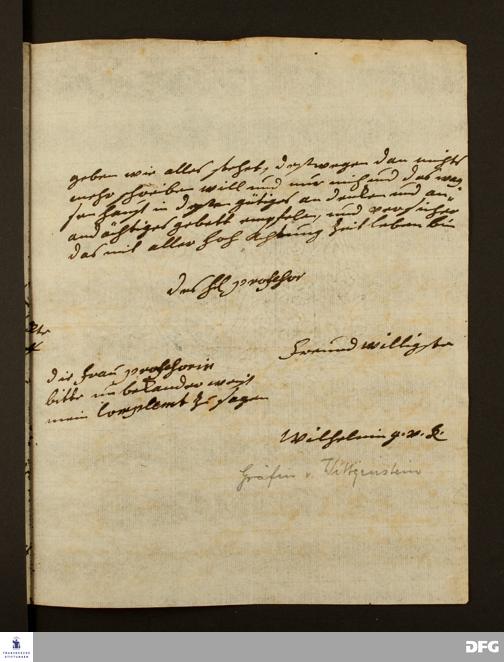 geben wie alles stehet, deßwegen dan nichts
mehr schreiben will und nur mich und das way
sen hauß in dero gütiges an dencken und an„
andächtiges gebett empfele, und versichere
das mit aller hoch achtung Zeit lebens bin
des H professor
Freund willigste
die frau professorin
bitte unbekander weiß
mein Complemt zu sagen
Wilhelmin g. v. 
Gräfin v. Wittgenstein
FRANCKESCHE STIFTUNGEN
DFG